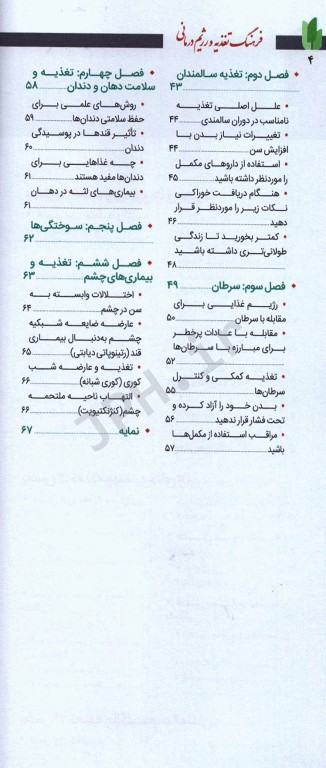 فرهنگ تغذیه و رژیم درمانی
۴
• فصل دوم: تغذیه سالمندان
۴۳
• علـــل اصلــی تغذیــه
نامناسب در دوران سالمندی .. ۴۴
• تغییـرات نیـاز بـدن بـا
افزایش سن ............ ۴۴
• استفـاده از داروهـای مکمـل
را موردنظر داشته باشید ... ۴۵
• هنــگام دریافــت خوراکــی
نکات زیــر را موردنظــر قــرار
دهید ............ ۴۶
• کمتــر بخوریــد تــا زندگــی
طولانی‌تــری داشــته باشــید
............ ۴۸
• فصل سوم: سرطان ...... ۴۹
• رژیــم غذایــی بــرای
مقابله با سرطان ........ ۵۰
• مقابلــه بــا عــادات پرخطــر
برای مبــارزه بــا ســرطان‌ها
............ ۵۲
• تغذیــه کمکــی و کنتــرل
سرطان‌ها ............ ۵۵
• بــدن خــود را آزاد کــرده و
تحت فشار قرار ندهید ..... ۵۶
• مراقب استفاده از مکمل‌ها
باشید ............ ۵۷
• فصــل چهــارم: تغذیــه و
سلامت دهان و دندان ... ۵۸
• روش‌هــای علمــی بــرای
حفظ سلامتی دندان‌ها ..... ۵۹
• تأثیــر قندهــا در پوســیدگی
دندان ............ ۶۰
• چــه غذاهایــی بــرای
دندان‌ها مفید هستند ...... ۶۱
• بیماری‌هــای لثــه در دهــان
............ ۶۱
• فصل پنجم: سوختگی‌ها
............ ۶۲
• فصــل ششــم: تغذیــه و
بیماری‌های چشم ....... ۶۳
• اختــلالات وابســته بــه
سن در چشم ............ ۶۴
• عارضــه ضایعــه شــبکیه
چشــم به‌دنبــال بیمــاری
قند (رتینوپاتی دیابتی) .... ۶۵
• تغذیــه و عارضــه شــب
کوری (کوری شبانه) ...... ۶۶
• التهــاب ناحیــه ملتحمــه
چشم (کنژنکتیویت) ...... ۶۶
• نمایه ............ ۶۷